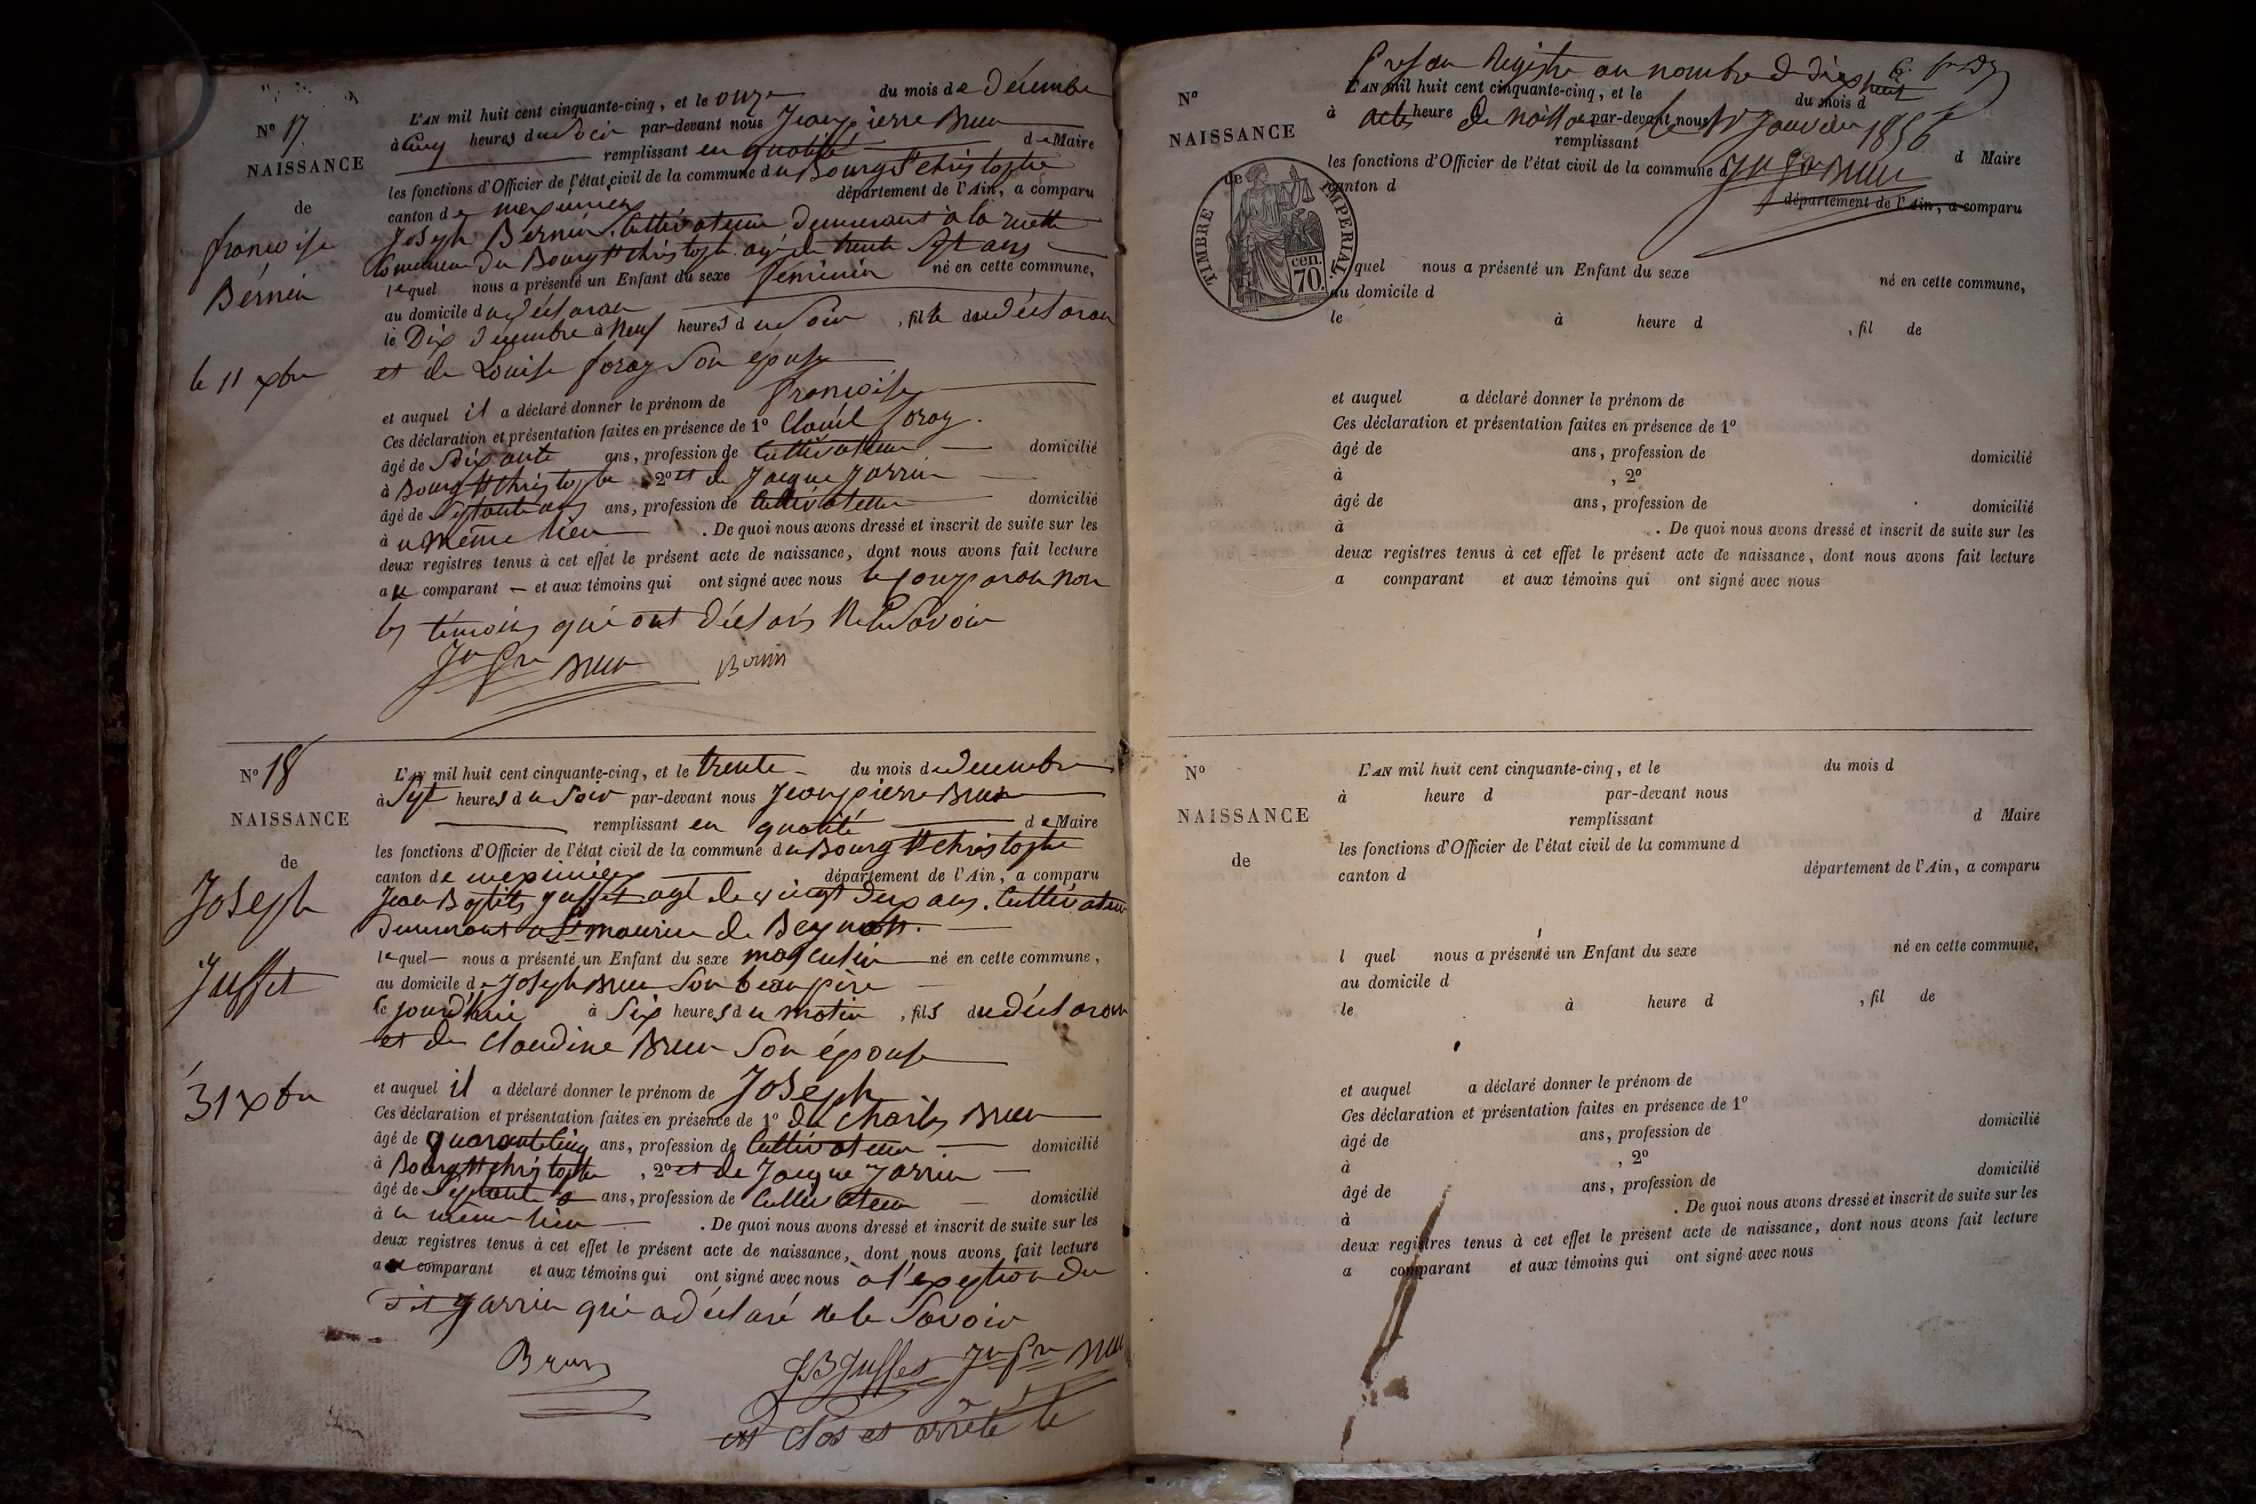 N° 17
NAISSANCE
de
francoise
Bérnin
le 11 xbre
L'AN mil huit cent cinquante-cinq, et le onze du mois de décembre
à cinq heures du Soir par-devant nous Jean pierre Brun
remplissant en qualité de Maire
les fonctions d'Officier de l'état civil de la commune du Bourg St christophe
canton de meximieux département de l'Ain, a comparu
Joseph Bérnin, Cultivateur demeurant à la ruette
Commune du Bourg St christophe agé de trente Sept ans
lequel nous a présenté un Enfant du sexe féminin né en cette commune,
au domicile du déclarant
le Dix décembre à Neuf heures du Soir, fille du déclarant
et de Louise foray Son épouse
et auquel il a déclaré donner le prénom de francoise
Ces déclaration et présentation faites en présence de 1° Claude foray
âgé de Soixante ans, profession de Cultivateur domicilié
à Bourg St christophe, 2° et de Jacque Jarrin
âgé de Septante ans ans, profession de Cultivateur domicilié
à u même lieu. De quoi nous avons dressé et inscrit de suite sur les
deux registres tenus à cet effet le présent acte de naissance, dont nous avons fait lecture
au comparant et aux témoins qui ont signé avec nous le comparan non
les témoins qui ont déclaré ne le Savoir
Jn Pre Brun Bernin
N° 18
NAISSANCE
de
Joseph
Juffet
31 xbre
L'AN mil huit cent cinquante-cinq, et le trente du mois de décembre
à Sept heures du Soir par-devant nous Jean pierre Brun
remplissant en qualité de Maire
les fonctions d'Officier de l'état civil de la commune du Bourg St christophe
canton de meximieux département de l'Ain, a comparu
Jean Baptiste Juffet agé de vingt deux ans, Cultivateur
demeurant a St maurice de Beynost
lequel nous a présenté un Enfant du sexe masculin né en cette commune,
au domicile de Joseph Brun Son beau père
le jourd'hui à Six heures du matin, fils du déclarant
et de Claudine Brun Son épouse
et auquel il a déclaré donner le prénom de Joseph
Ces déclaration et présentation faites en présence de 1° de Charles Brun
âgé de quarante cinq ans, profession de Cultivateur domicilié
à Bourg St christophe, 2° et de Jacque Jarrin
âgé de Septante ans, profession de Cultivateur domicilié
à u même lieu. De quoi nous avons dressé et inscrit de suite sur les
deux registres tenus à cet effet le présent acte de naissance, dont nous avons fait lecture
au comparant et aux témoins qui ont signé avec nous a l'exeption du
dit Jarrin qui a déclaré ne le Savoir
Brun JB Juffet Jn Pre Brun
clos et arrêté le
présan Registre au nombre de dix huit
actes de naissance le 1er Janvier 1856
Jn Pre Brun
N°
NAISSANCE
de
TIMBRE IMPERIAL.
70. cen.
L'AN mil huit cent cinquante-cinq, et le du mois d
à heure d par-devant nous
remplissant d Maire
les fonctions d'Officier de l'état civil de la commune d
canton d département de l'Ain, a comparu
l quel nous a présenté un Enfant du sexe né en cette commune,
au domicile d
le à heure d , fil de
et auquel a déclaré donner le prénom de
Ces déclaration et présentation faites en présence de 1°
âgé de ans, profession de domicilié
à , 2°
âgé de ans, profession de domicilié
à . De quoi nous avons dressé et inscrit de suite sur les
deux registres tenus à cet effet le présent acte de naissance, dont nous avons fait lecture
a comparant et aux témoins qui ont signé avec nous
N°
NAISSANCE
de
L'AN mil huit cent cinquante-cinq, et le du mois d
à heure d par-devant nous
remplissant d Maire
les fonctions d'Officier de l'état civil de la commune d
canton d département de l'Ain, a comparu
l quel nous a présenté un Enfant du sexe né en cette commune,
au domicile d
le à heure d , fil de
et auquel a déclaré donner le prénom de
Ces déclaration et présentation faites en présence de 1°
âgé de ans, profession de domicilié
à , 2°
âgé de ans, profession de domicilié
à . De quoi nous avons dressé et inscrit de suite sur les
deux registres tenus à cet effet le présent acte de naissance, dont nous avons fait lecture
a comparant et aux témoins qui ont signé avec nous